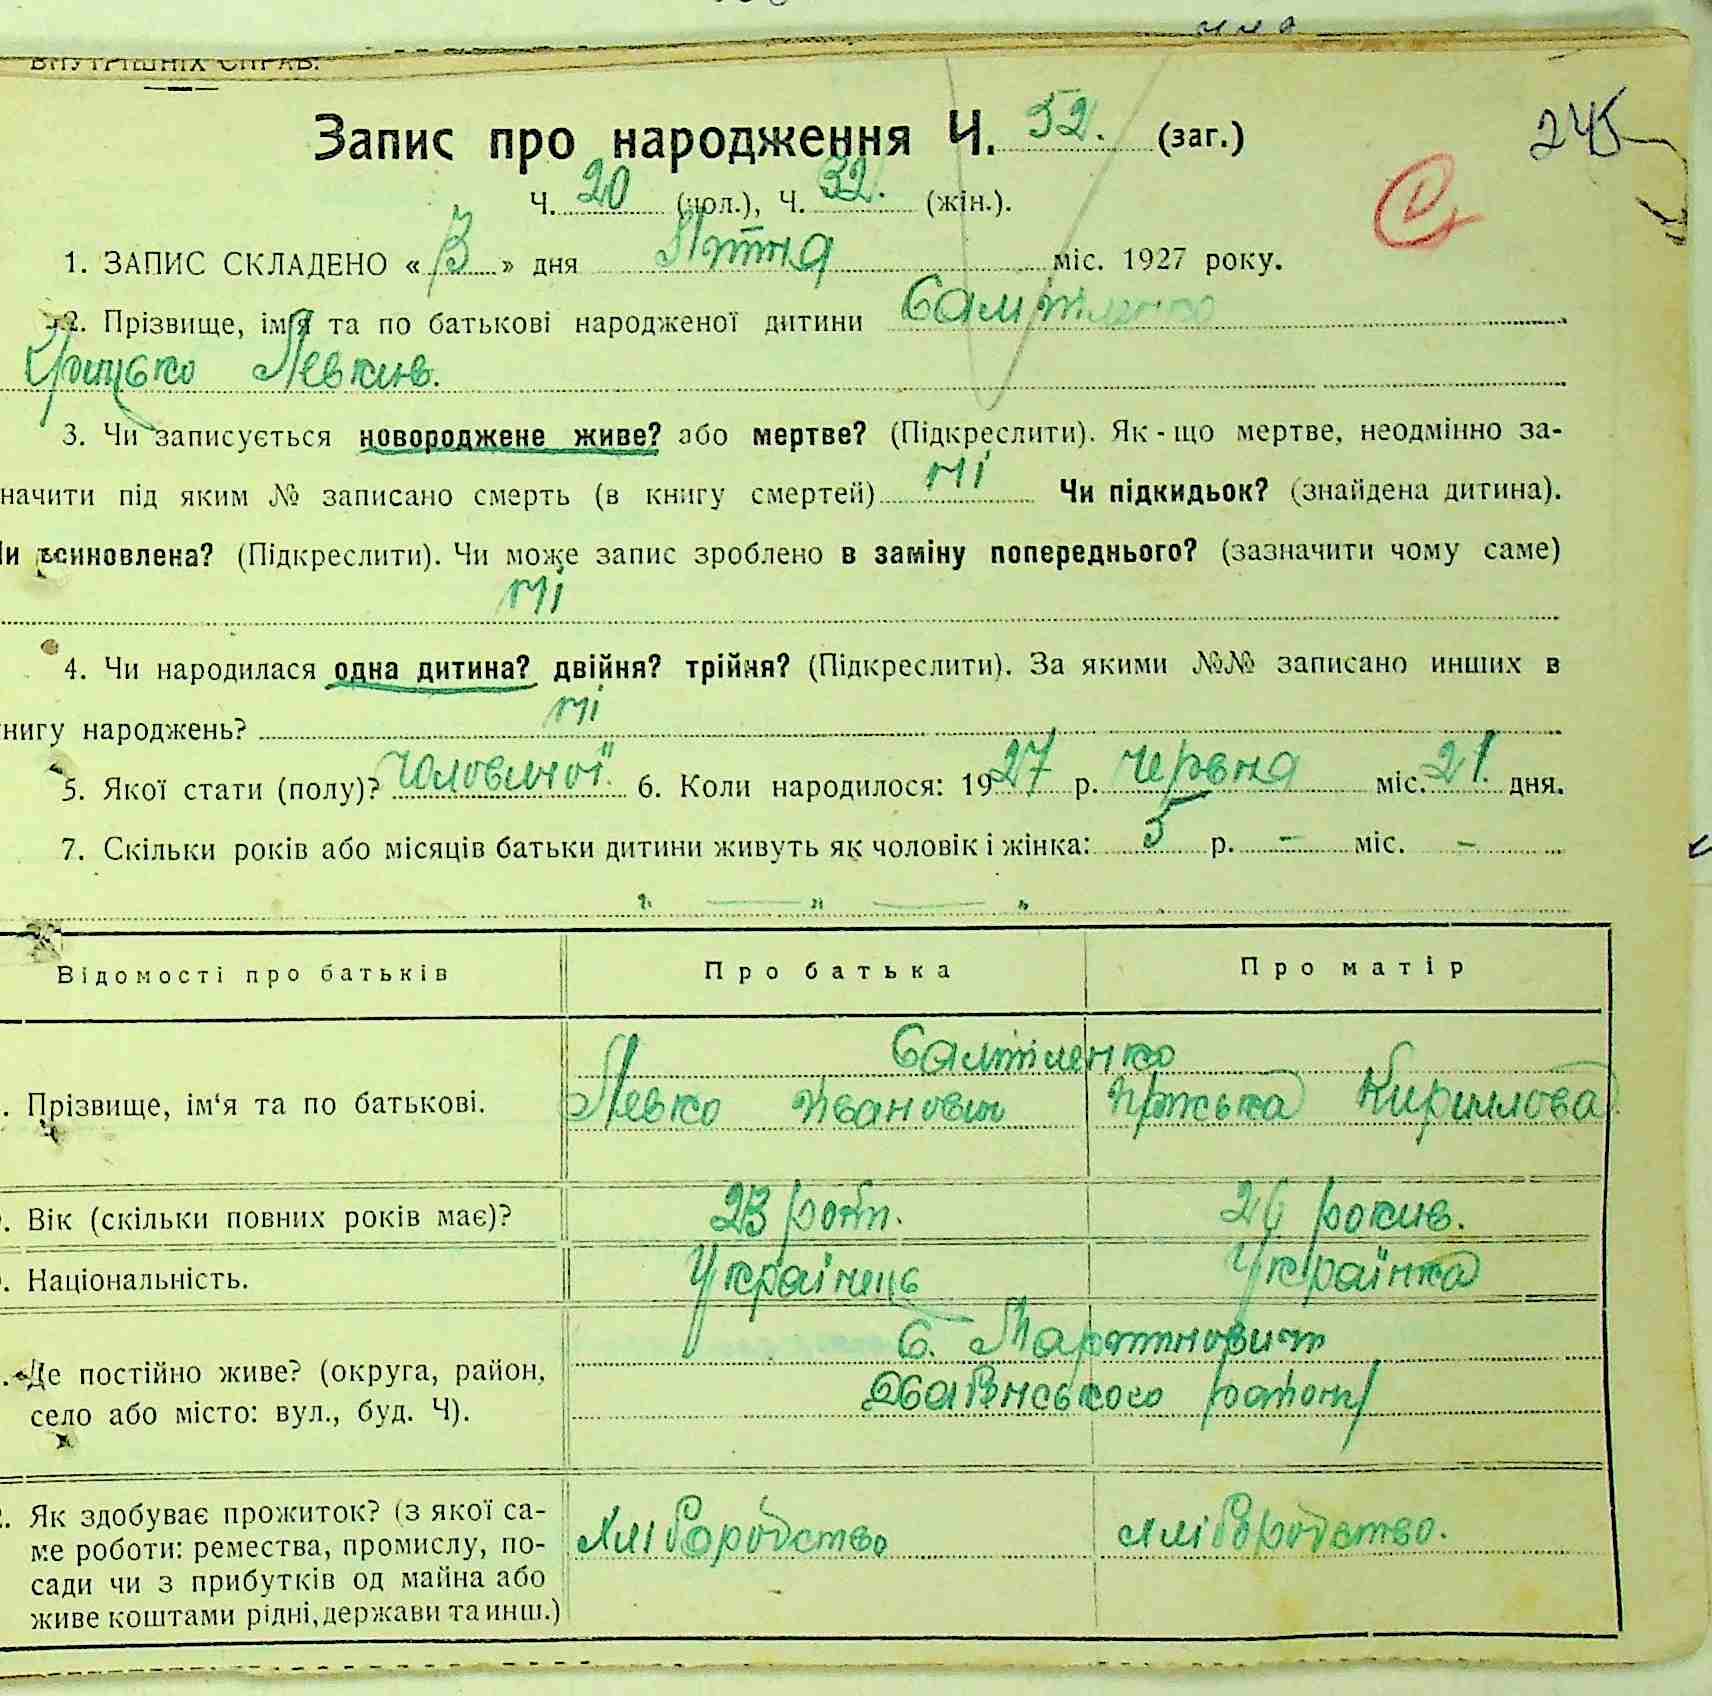 ВНУТРІШНІХ СПРАВ.
Запис про народження Ч. 52. (заг.)
245
Ч. 20 (чол.), Ч. 32. (жін.).
1. ЗАПИС СКЛАДЕНО « 3 » дня Липня міс. 1927 року.
2. Прізвище, ім'я та по батькові народженої дитини
Грицько Левков.
3. Чи записується новороджене живе? або мертве? (Підкреслити). Як-що мертве, неодмінно за-
начити під яким № записано смерть (в книгу смертей) ні Чи підкидьок? (знайдена дитина).
Чи всиновлена? (Підкреслити). Чи може запис зроблено в заміну попереднього? (зазначити чому саме)
ні
4. Чи народилася одна дитина? двійня? трійня? (Підкреслити). За якими №№ записано инших в
книгу народжень? ні
5. Якої стати (полу)? Чоловичої. 6. Коли народилося: 1927 р. червня міс. 21. дня.
7. Скільки років або місяців батьки дитини живуть як чоловік і жінка: 5 р. – міс. –
Відомості про батьків Про батька Про матір
Прізвище, ім'я та по батькові. Левко Иванович Кириллова
Вік (скільки повних років має)? 23 26 рокив.
Національність. Українець Українка
С. Мартинович
Де постійно живе? (округа, район, село або місто: вул., буд. Ч). району
Як здобуває прожиток? (з якої са-
ме роботи: ремества, промислу, по- хліборобство хліборобство.
сади чи з прибутків од майна або
живе коштами рідні, держави та инш.)